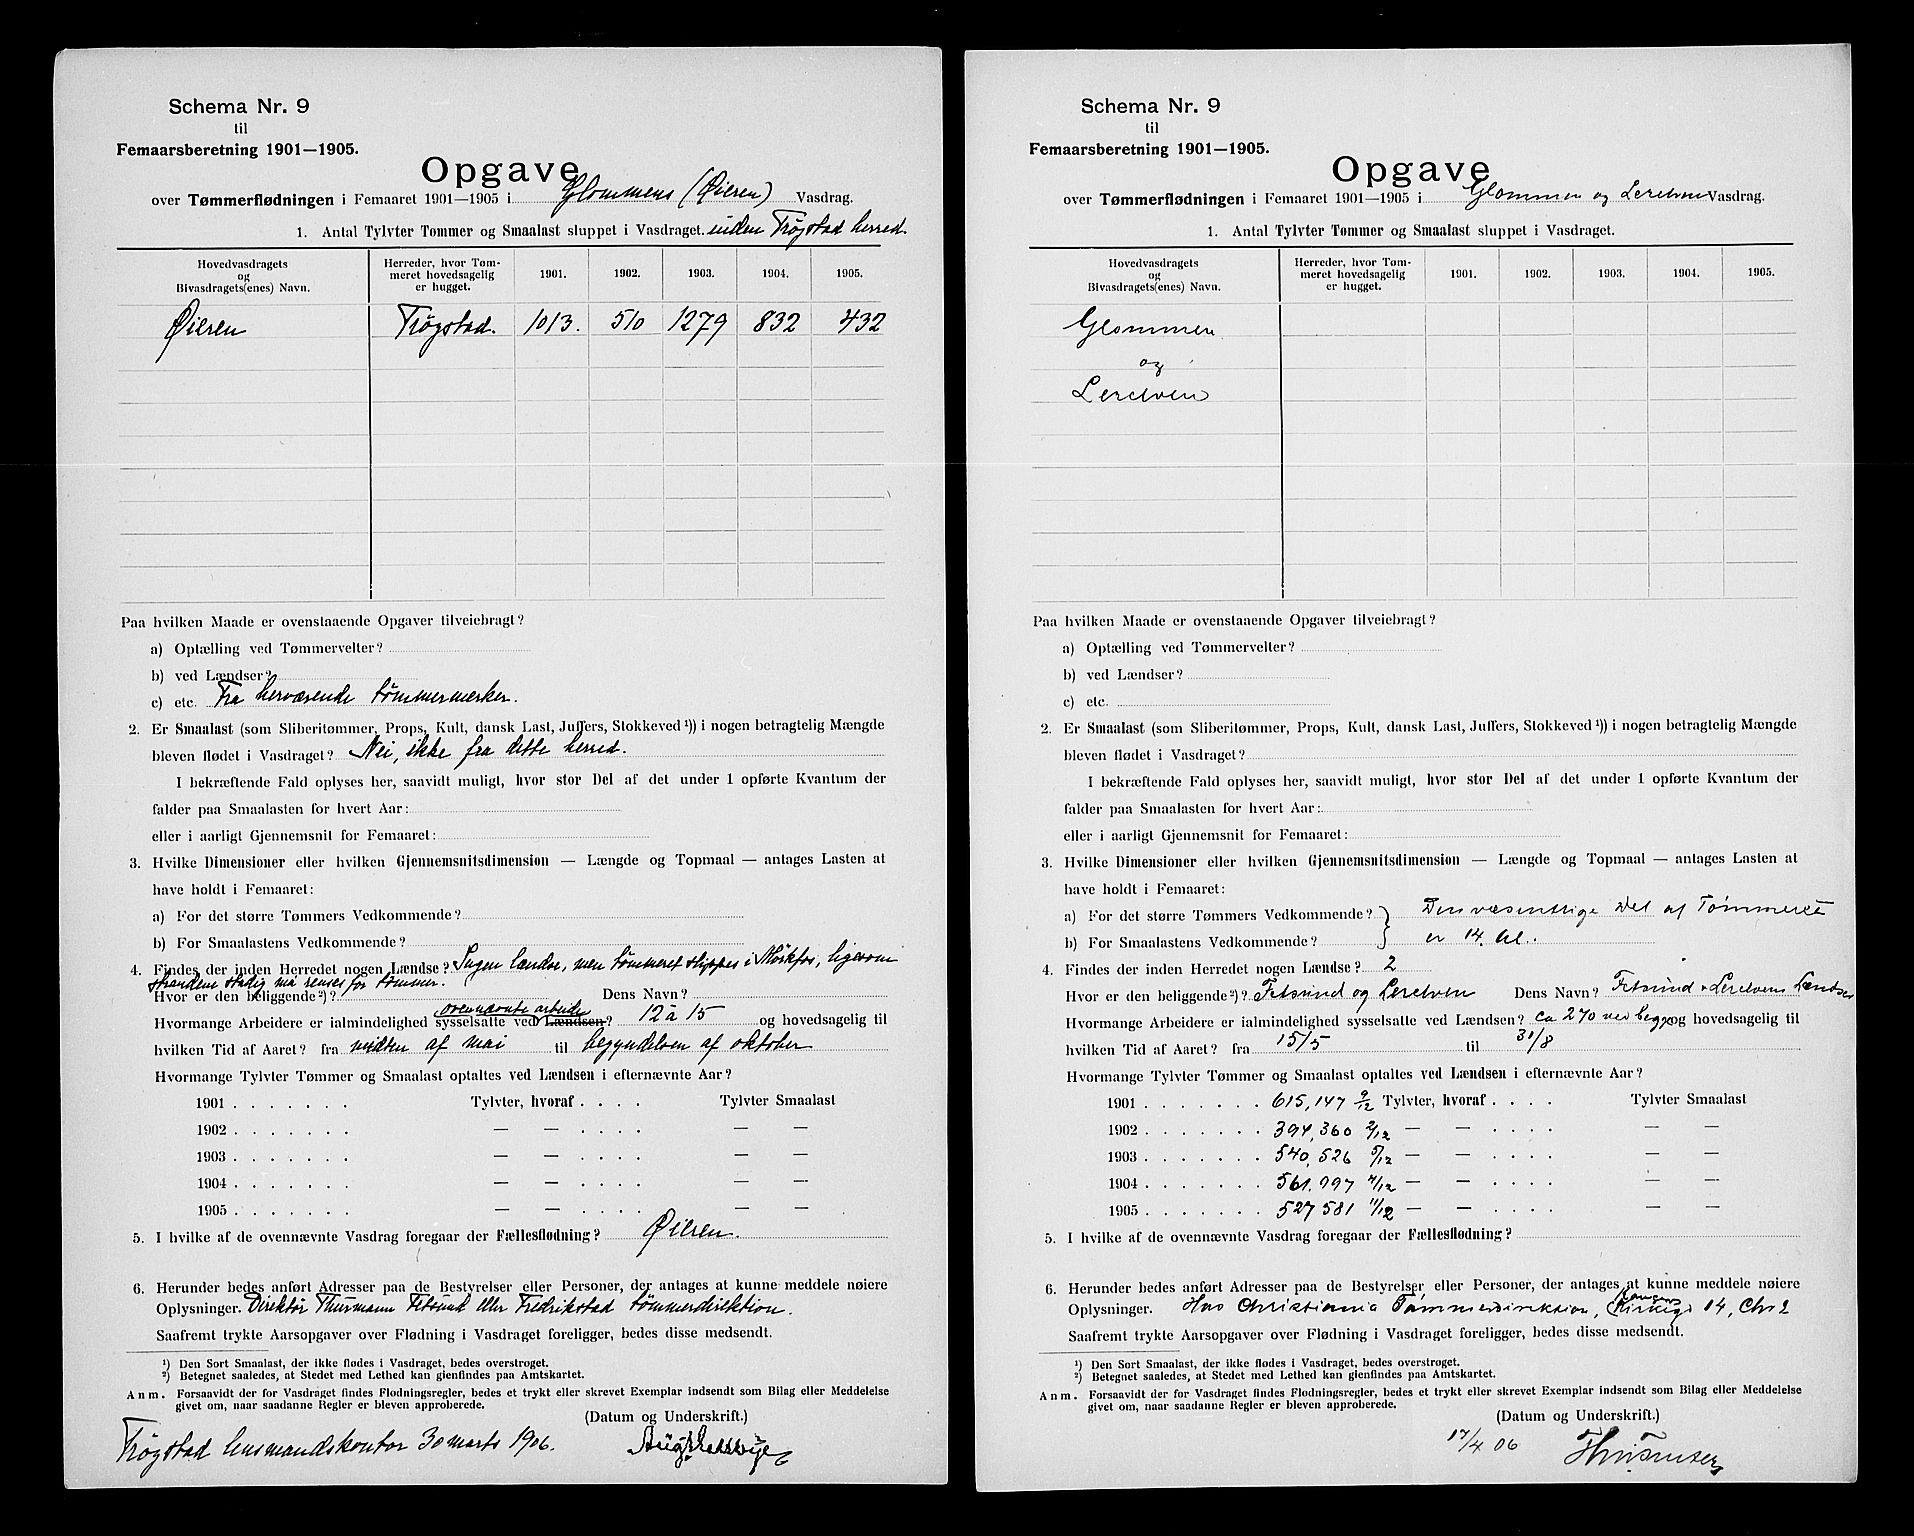 Schema Nr. 9
til
Femaarsberetning 1901—1905.
Opgave
over Tømmerflødningen i Femaaret 1901—1905 i Glommens (Øieren) Vasdrag.
1. Antal Tylvter Tømmer og Smaalast sluppet i Vasdraget. inden Trøgstad herred.
Hovedvasdragets og Bivasdragets(enes) Navn. Herreder, hvor Tømmeret hovedsagelig er hugget. 1901. 1902. 1903. 1904. 1905.
Øieren Trøgstad. 1013. 510 1279 832 432
Paa hvilken Maade er ovenstaaende Opgaver tilveiebragt?
a) Optælling ved Tømmervelter?
b) ved Lændser?
c) etc. Fra herværende tømmermerker.
2. Er Smaalast (som Sliberitømmer, Props, Kult, dansk Last, Juffers, Stokkeved ¹)) i nogen betragtelig Mængde
bleven flødet i Vasdraget? Nei, ikke fra dette herred.
I bekræftende Fald oplyses her, saavidt muligt, hvor stor Del af det under 1 opførte Kvantum der
falder paa Smaalasten for hvert Aar:
eller i aarligt Gjennemsnit for Femaaret:
3. Hvilke Dimensioner eller hvilken Gjennemsnitsdimension — Længde og Topmaal — antages Lasten at
have holdt i Femaaret:
a) For det større Tømmers Vedkommende?
b) For Smaalastens Vedkommende?
4. Findes der inden Herredet nogen Lændse? Ingen lændse, men tømmeret slippes i Mørkfos, ligesom
strandene stadig må renses for tømmer.
Hvor er den beliggende ²)? Dens Navn?
ovennævnte arbeide
Hvormange Arbeidere er ialmindelighed sysselsatte ved Lændsen? 12 à 15 og hovedsagelig til
hvilken Tid af Aaret? fra midten af mai til begyndelsen af oktober
Hvormange Tylvter Tømmer og Smaalast optaltes ved Lændsen i efternævnte Aar?
1901 . . . . . . . Tylvter, hvoraf . . . . Tylvter Smaalast
1902 . . . . . . . — — . . . . — —
1903 . . . . . . . — — . . . . — —
1904 . . . . . . . — — . . . . — —
1905 . . . . . . . — — . . . . — —
5. I hvilke af de ovennævnte Vasdrag foregaar der Fællesflødning? Øieren.
6. Herunder bedes anført Adresser paa de Bestyrelser eller Personer, der antages at kunne meddele nøiere
Oplysninger. Direktør Thurmann Fetsund eller Fredrikstad tømmerdirektion.
Saafremt trykte Aarsopgaver over Flødning i Vasdraget foreligger, bedes disse medsendt.
¹) Den Sort Smaalast, der ikke flødes i Vasdraget, bedes overstrøget.
²) Betegnet saaledes, at Stedet med Lethed kan gienfindes paa Amtskartet.
Anm. Forsaavidt der for Vasdraget findes Flødningsregler, bedes et trykt eller skrevet Exemplar indsendt som Bilag eller Meddelelse
givet om, naar saadanne Regler er bleven approberede.
(Datum og Underskrift.)
Trøgstad lensmandskontor 30 marts 1906.
Schema Nr. 9
til
Femaarsberetning 1901—1905.
Opgave
over Tømmerflødningen i Femaaret 1901—1905 i Glommen og Lerelven Vasdrag.
1. Antal Tylvter Tømmer og Smaalast sluppet i Vasdraget.
Hovedvasdragets og Bivasdragets(enes) Navn. Herreder, hvor Tømmeret hovedsagelig er hugget. 1901. 1902. 1903. 1904. 1905.
Glommen
og
Lerelven
Paa hvilken Maade er ovenstaaende Opgaver tilveiebragt?
a) Optælling ved Tømmervelter?
b) ved Lændser?
c) etc.
2. Er Smaalast (som Sliberitømmer, Props, Kult, dansk Last, Juffers, Stokkeved ¹)) i nogen betragtelig Mængde
bleven flødet i Vasdraget?
I bekræftende Fald oplyses her, saavidt muligt, hvor stor Del af det under 1 opførte Kvantum der
falder paa Smaalasten for hvert Aar:
eller i aarligt Gjennemsnit for Femaaret:
3. Hvilke Dimensioner eller hvilken Gjennemsnitsdimension — Længde og Topmaal — antages Lasten at
have holdt i Femaaret:
a) For det større Tømmers Vedkommende? Den væsentlige Del af Tømmeret
b) For Smaalastens Vedkommende? er 14 al.
4. Findes der inden Herredet nogen Lændse? 2
Hvor er den beliggende ²)? Fetsund og Lerelven Dens Navn? Fetsund & Lerelvens Lændser
Hvormange Arbeidere er ialmindelighed sysselsatte ved Lændsen? ca 270 ved begge og hovedsagelig til
hvilken Tid af Aaret? fra 15/5 til 31/8
Hvormange Tylvter Tømmer og Smaalast optaltes ved Lændsen i efternævnte Aar?
1901 . . . . . . . 615,147 9/12 Tylvter, hvoraf . . . . Tylvter Smaalast
1902 . . . . . . . 394,360 2/12 — — . . . . — —
1903 . . . . . . . 540,526 5/12 — — . . . . — —
1904 . . . . . . . 561.997 4/12 — — . . . . — —
1905 . . . . . . . 527581 11/12 — — . . . . — —
5. I hvilke af de ovennævnte Vasdrag foregaar der Fællesflødning?
6. Herunder bedes anført Adresser paa de Bestyrelser eller Personer, der antages at kunne meddele nøiere
Oplysninger. Hos Christiania Tømmerdirektion, 14, Chr 2
Saafremt trykte Aarsopgaver over Flødning i Vasdraget foreligger, bedes disse medsendt.
¹) Den Sort Smaalast, der ikke flødes i Vasdraget, bedes overstrøget.
²) Betegnet saaledes, at Stedet med Lethed kan gienfindes paa Amtskartet.
Anm. Forsaavidt der for Vasdraget findes Flødningsregler, bedes et trykt eller skrevet Exemplar indsendt som Bilag eller Meddelelse
givet om, naar saadanne Regler er bleven approberede.
(Datum og Underskrift.)
17/4 06